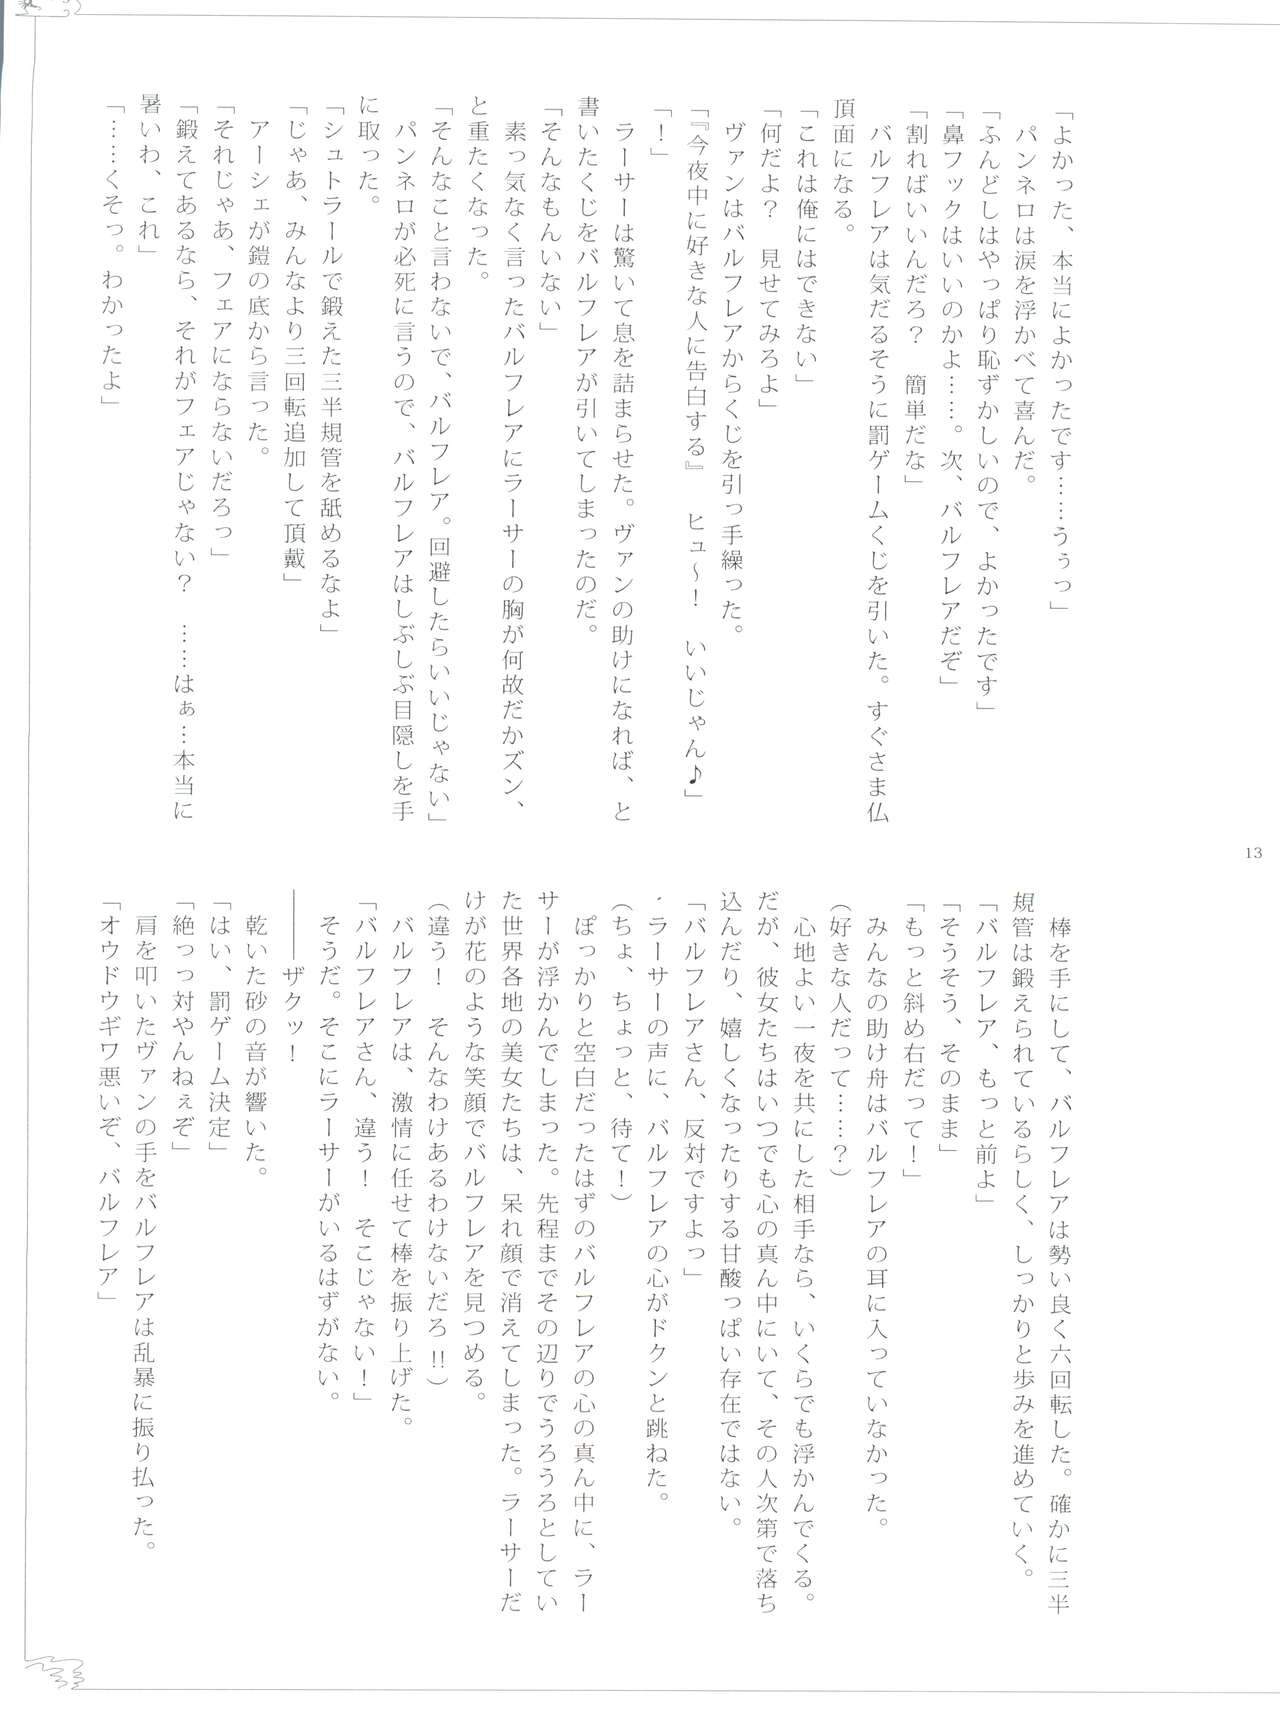 「よかった、本当によかったです……うぅっ」
　パンネロは涙を浮かべて喜んだ。
「ふんどしはやっぱり恥ずかしいので、よかったです」
「鼻フックはいいのかよ……。次、バルフレアだぞ」
「割ればいいんだろ？　簡単だな」
　バルフレアは気だるそうに罰ゲームくじを引いた。すぐさま仏
頂面になる。
「これは俺にはできない」
「何だよ？　見せてみろよ」
　ヴァンはバルフレアからくじを引っ手繰った。
「『今夜中に好きな人に告白する』　ヒュ～！　いいじゃん♪」
「！」
　ラーサーは驚いて息を詰まらせた。ヴァンの助けになれば、と
書いたくじをバルフレアが引いてしまったのだ。
「そんなもんいない」
　素っ気なく言ったバルフレアにラーサーの胸が何故だかズン、
と重たくなった。
「そんなこと言わないで、バルフレア。回避したらいいじゃない」
　パンネロが必死に言うので、バルフレアはしぶしぶ目隠しを手
に取った。
「シュトラールで鍛えた三半規管を舐めるなよ」
「じゃあ、みんなより三回転追加して頂戴」
　アーシェが鎧の底から言った。
「それじゃあ、フェアにならないだろっ」
「鍛えてあるなら、それがフェアじゃない？　……はぁ…本当に
暑いわ、これ」
「……くそっ。わかったよ」
　棒を手にして、バルフレアは勢い良く六回転した。確かに三半
規管は鍛えられているらしく、しっかりと歩みを進めていく。
「バルフレア、もっと前よ」
「そうそう、そのまま」
「もっと斜め右だって！」
　みんなの助け舟はバルフレアの耳に入っていなかった。
（好きな人だって……？）
　心地よい一夜を共にした相手なら、いくらでも浮かんでくる。
だが、彼女たちはいつでも心の真ん中にいて、その人次第で落ち
込んだり、嬉しくなったりする甘酸っぱい存在ではない。
「バルフレアさん、反対ですよっ」
・ラーサーの声に、バルフレアの心がドクンと跳ねた。
（ちょ、ちょっと、待て！）
　ぽっかりと空白だったはずのバルフレアの心の真ん中に、ラー
サーが浮かんでしまった。先程までその辺りでうろうろとしてい
た世界各地の美女たちは、呆れ顔で消えてしまった。ラーサーだ
けが花のような笑顔でバルフレアを見つめる。
（違う！　そんなわけあるわけないだろ!!）
　バルフレアは、激情に任せて棒を振り上げた。
「バルフレアさん、違う！　そこじゃない！」
　そうだ。そこにラーサーがいるはずがない。
――ザクッ！
　乾いた砂の音が響いた。
「はい、罰ゲーム決定」
「絶っっ対やんねぇぞ」
　肩を叩いたヴァンの手をバルフレアは乱暴に振り払った。
「オウドウギワ悪いぞ、バルフレア」
13